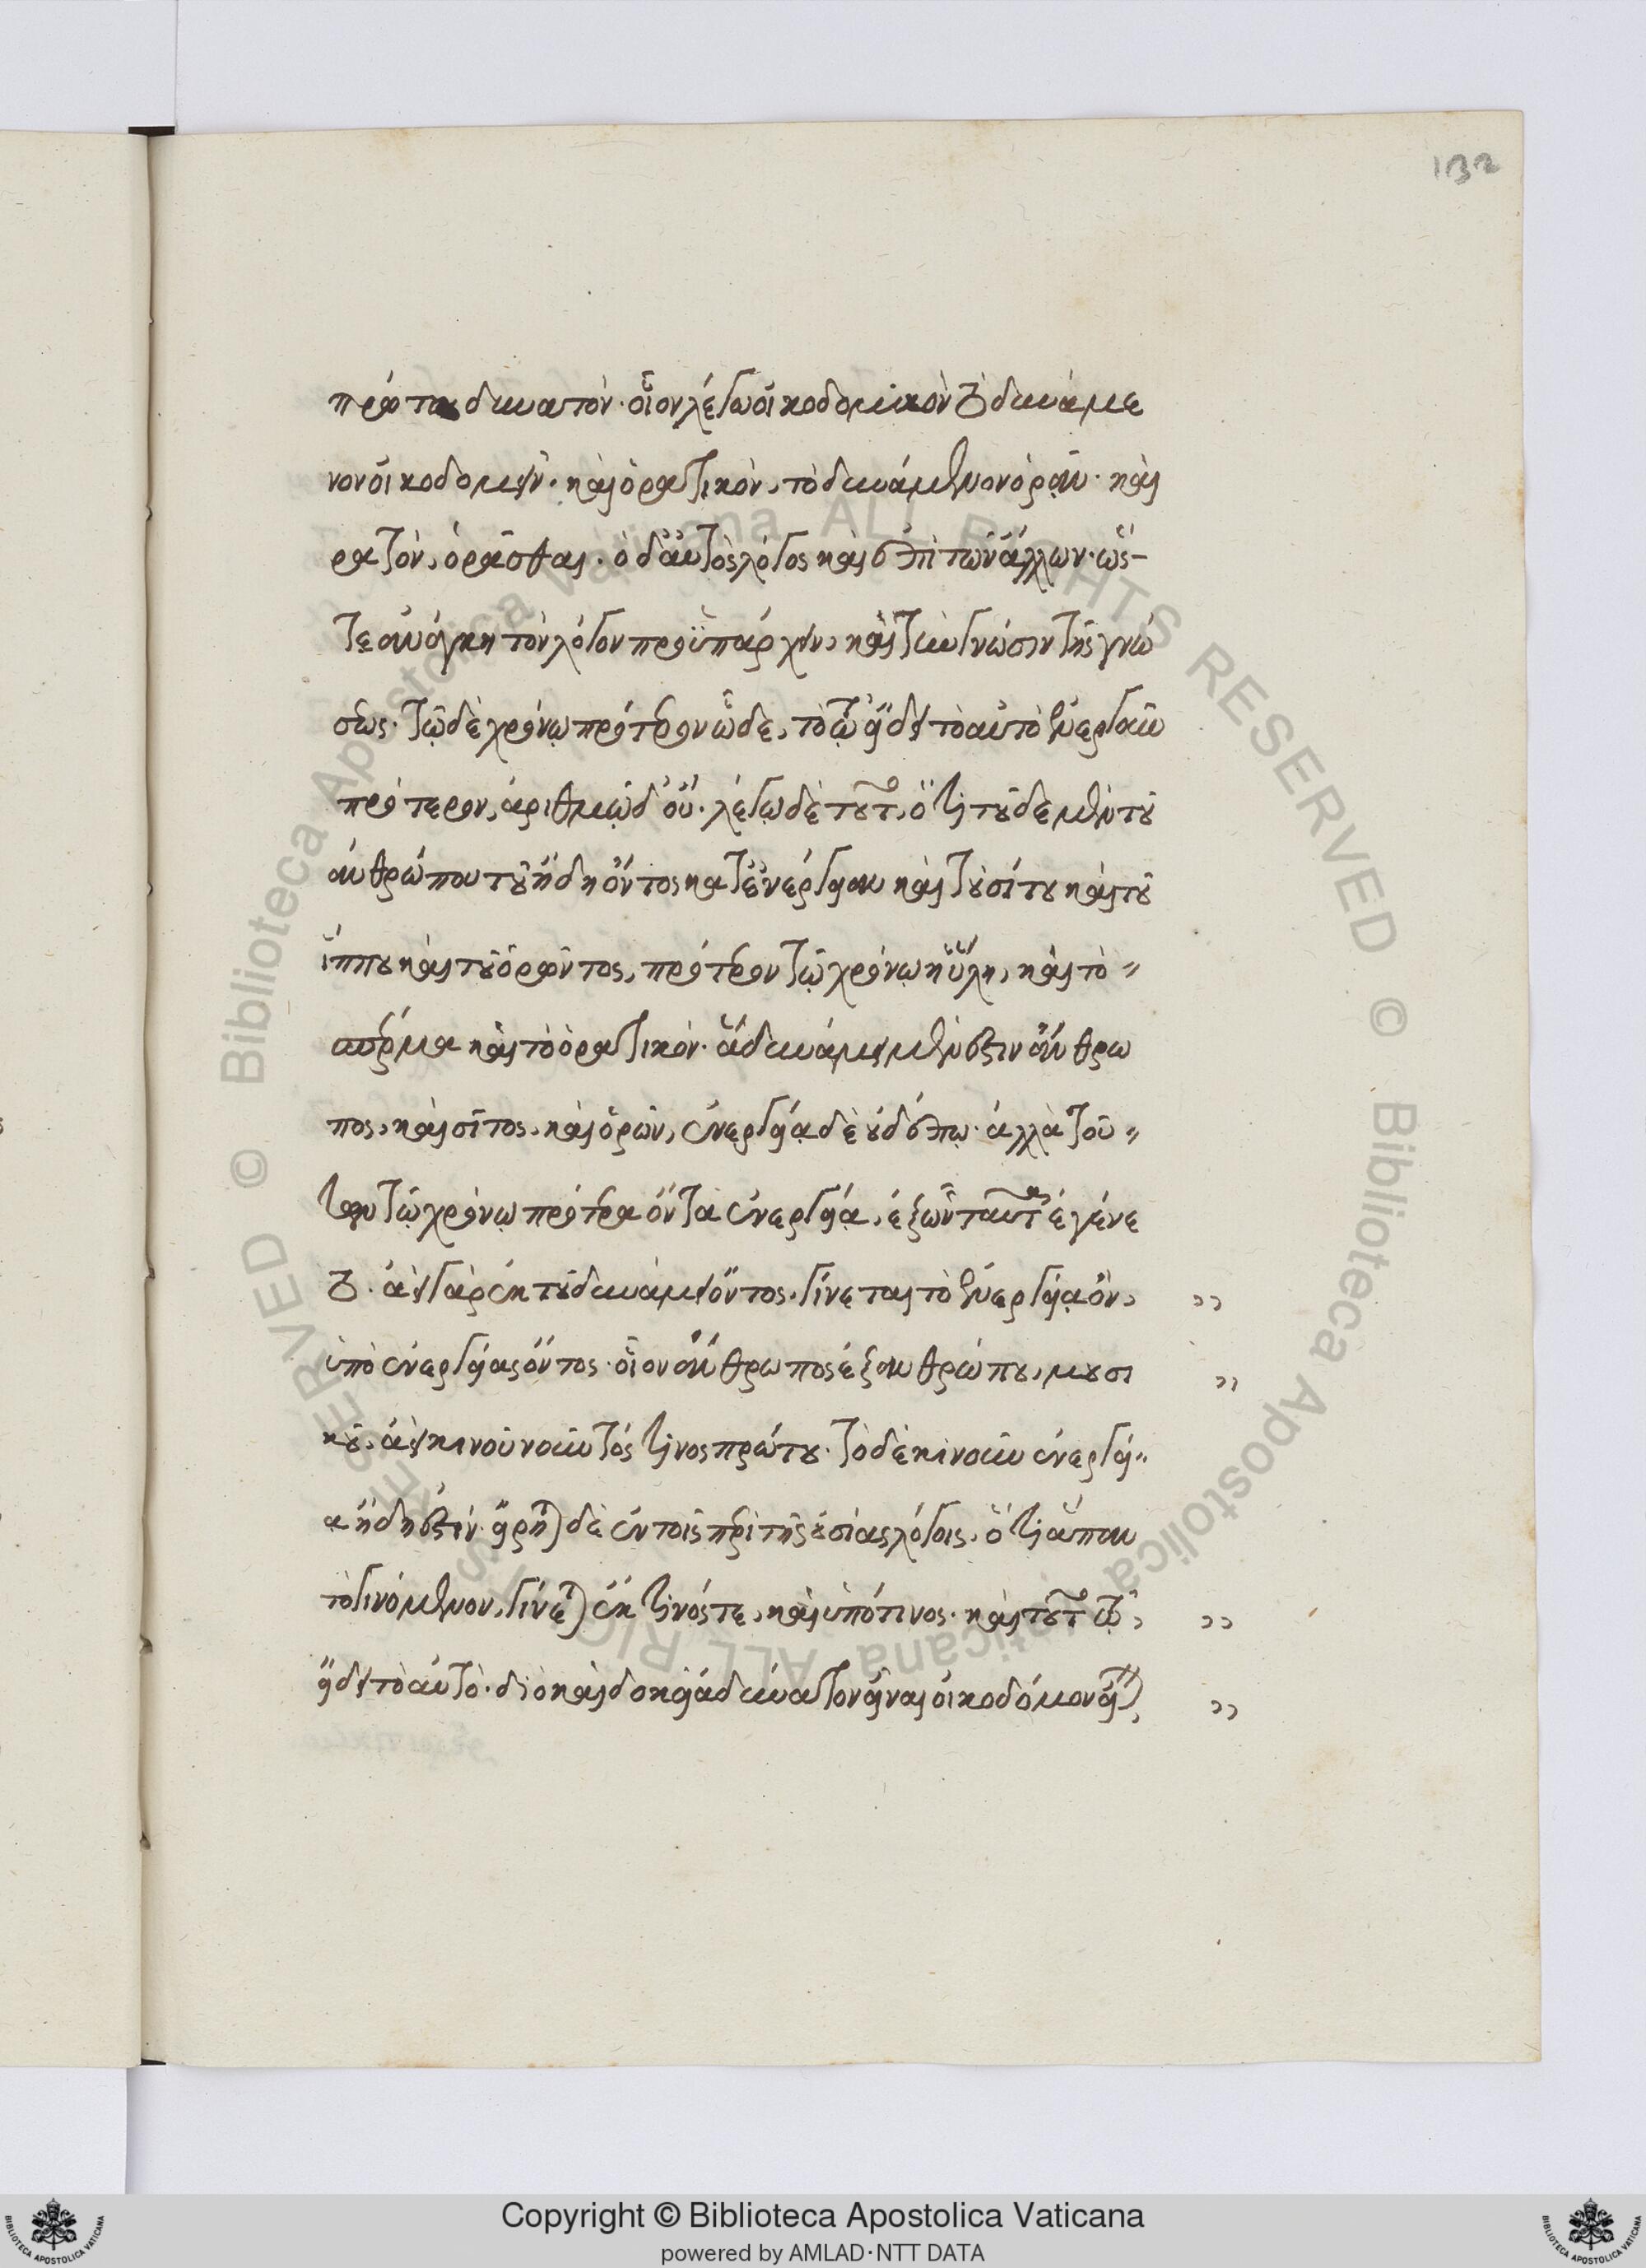 132
πρώτως δυνατόν· οἷον λέγω οἰκοδομικὸν τὸ δυνάμε
νον οἰκοδομεῖν· καὶ ὁρατικόν, τὸ δυνάμενον ὁρᾶν· καὶ
ρατὸν, ὁρᾶσθαι. ὁ δ' αὐτὸς λόγος καὶ ἐπὶ τῶν ἄλλων· ὥσ-
τε ἀνάγκη τὸν λόγον προϋπάρχειν, καὶ τὴν γνῶσιν τῆς γνώ
σεως· τῷ δὲ χρόνῳ πρότερον ὧδε, τὸ τῷ εἴδει τὸ αὐτὸ ἐνεργοῦν
πρότερον, ἀριθμῷ δ' οὔ· λέγω δὲ τοῦτο, ὅτι τοῦδε μὲν τοῦ
ἀνθρώπου τοῦ ἤδη ὄντος κατ' ἐνέργειαν καὶ τοῦ σίτου καὶ τοῦ
ἵππου καὶ τοῦ ὁρῶντος, πρότερον τῷ χρόνῳ ἡ ὕλη, καὶ τὸ
σπέρμα καὶ τὸ ὁρατικόν· ἃ δυνάμει μέν ἐστιν ἄνθρω
πος, καὶ σῖτος, καὶ ὁρῶν, ἐνεργείᾳ δὲ οὐδέπω· ἀλλὰ τού
των τῷ χρόνῳ πρότερα ὄντα ἐνεργείᾳ, ἐξ ὧν ταῦτα ἐγένε
το· ἀεὶ γὰρ ἐκ τοῦ δυνάμει ὄντος, γίνεται τὸ ἐνεργείᾳ ὂν,
ὑπὸ ἐνεργείας ὄντος· οἷον ἄνθρωπος ἐξ ἀνθρώπου, μουσι
κοῦ, ἀεὶ κινοῦνοῦντός τινος πρώτου· τὸ δὲ κινοῦν ἐνεργεί
α ἤδη ἐστίν· εἴρηται δὲ ἐν τοῖς περὶ τῆς οὐσίας λόγοις, ὅτι ἅπαν
τὸ γινόμενον, γίνεται ἔκ τινός τε, καὶ ὑπό τινος· καὶ τοῦτο τῷ
εἴδει τὸ αὐτό· διὸ καὶ δοκεῖ ἀδύνατον εἶναι οἰκοδόμον εἶναι
Copyright © Biblioteca Apostolica Vaticana
powered by AMLAD·NTT DATA